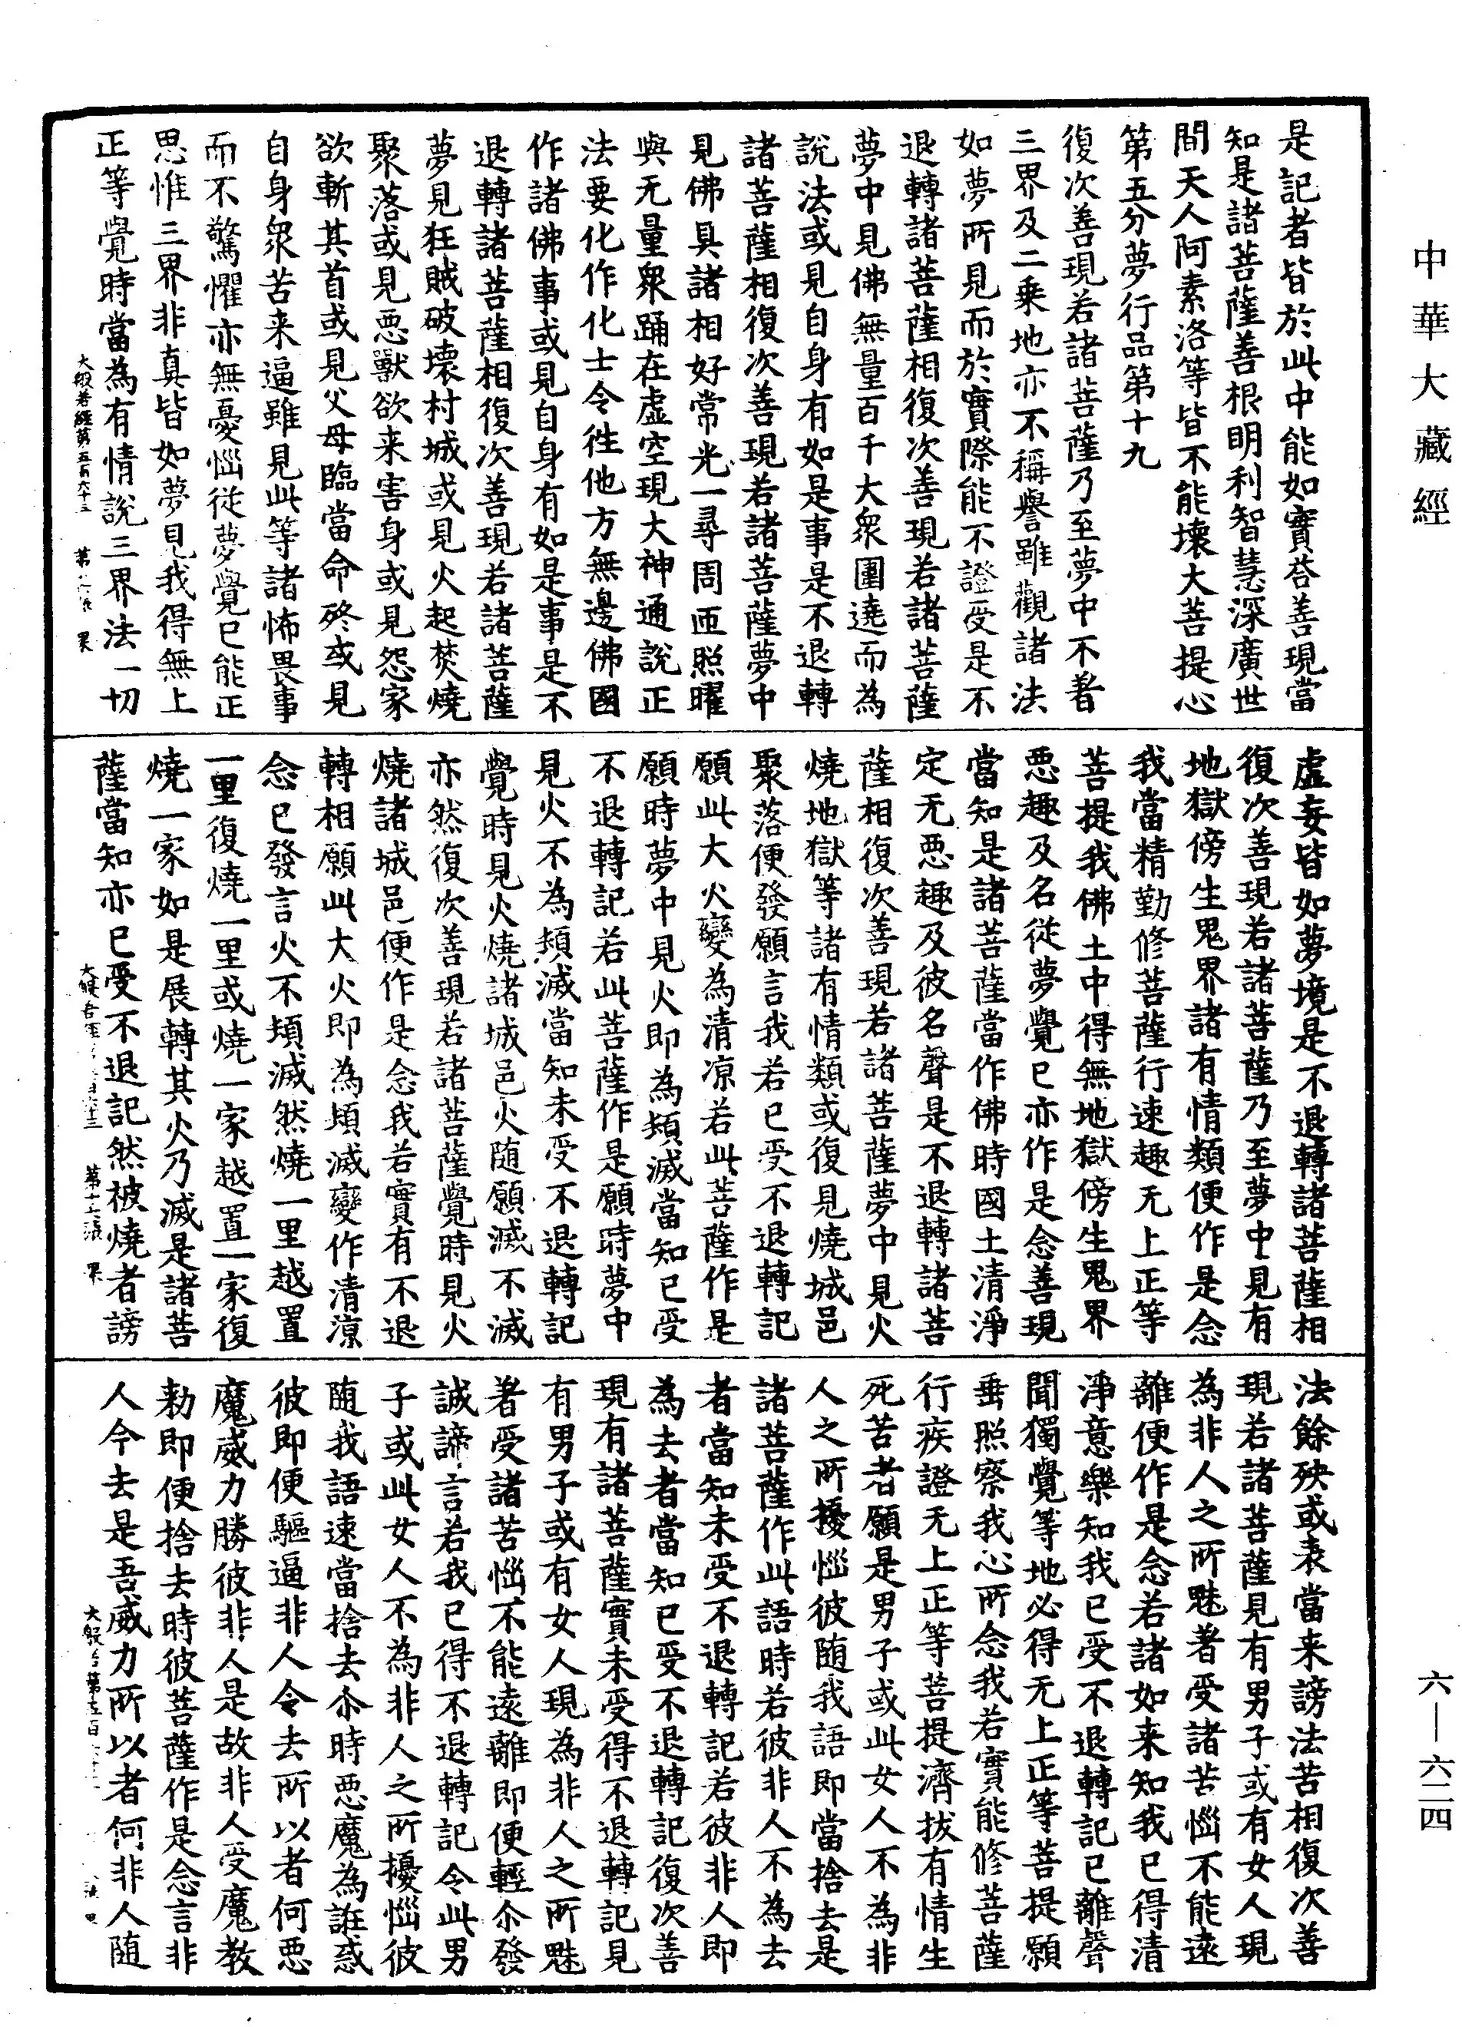 中華大藏經
是記者皆於此中能如實荅善現當
知是諸菩薩善根明利智慧深廣世
間天人阿素洛等皆不能壞大菩提心
第五分夢行品第十九
復次善現若諸菩薩乃至夢中不著
三界及二乘地亦不稱譽雖觀諸法
如夢所見而於實際能不證受是不
退轉諸菩薩相復次善現若諸菩薩
夢中見佛無量百千大衆圍遶而為
說法或見自身有如是事是不退轉
諸菩薩相復次善現若諸菩薩夢中
見佛具諸相好常光一尋周匝照曜
與无量衆踊在虛空現大神通說正
法要化作化士令往他方無邊佛國
作諸佛事或見自身有如是事是不
退轉諸菩薩相復次善現若諸菩薩
夢見狂賊破壞村城或見火起焚燒
聚落或見惡獸欲來害身或見怨家
欲斬其首或見父母臨當命終或見
自身衆苦来逼雖見此等諸怖畏事
而不驚懼亦無憂惱從夢覺已能正
思惟三界非真皆如夢見我得無上
正等覺時當為有情說三界法一切
大般若經第五百六十三 第 張 果
虛妄皆如夢境是不退轉諸菩薩相
復次善現若諸菩薩乃至夢中見有
地獄傍生鬼界諸有情類便作是念
我當精勤修菩薩行速趣无上正等
菩提我佛土中得無地獄傍生鬼界
惡趣及名從夢覺已亦作是念善現
當知是諸菩薩當作佛時國土清淨
定无惡趣及彼名聲是不退轉諸菩
薩相復次善現若諸菩薩夢中見火
燒地獄等諸有情類或復見燒城邑
聚落便發願言我若已受不退轉記
願此大火變為清凉若此菩薩作是
願時夢中見火即為頓滅當知已受
不退轉記若此菩薩作是願時夢中
見火不為頓滅當知未受不退轉記
覺時見火燒諸城邑火随願滅不滅
亦然復次善現若諸菩薩覺時見火
燒諸城邑便作是念我若實有不退
轉相願此大火即為頓滅變作清凉
念已發言火不頓滅然燒一里越置
一里復燒一里或燒一家越置一家復
燒一家如是展轉其火乃滅是諸菩
薩當知亦已受不退記然被燒者謗
第十六張 果
法餘殃或表當来謗法苦相復次善
現若諸菩薩見有男子或有女人現
為非人之所魅著受諸苦惱不能遠
離便作是念若諸如来知我已得清
淨意樂知我已受不退轉記已離聲
聞獨覺等地必得无上正等菩提願
垂照察我心所念我若實能修菩薩
行疾證无上正等菩提濟拔有情生
死苦者願是男子或此女人不為非
人之所擾惱彼随我語即當捨去是
諸菩薩作此語時若彼非人不為去
者當知未受不退轉記若彼非人即
為去者當知已受不退轉記復次善
現有諸菩薩實未受得不退轉記見
有男子或有女人現為非人之所魅
著受諸苦惱不能遠離即便輕尒發
誠諦言若我已得不退轉記令此男
子或此女人不為非人之所擾惱彼
随我語速當捨去尒時惡魔為誑惑
彼即便驅逼非人令去所以者何惡
魔威力勝彼非人是故非人受魔教
勅即便捨去時彼菩薩作是念言非
人今去是吾威力所以者何非人随
六—六二四